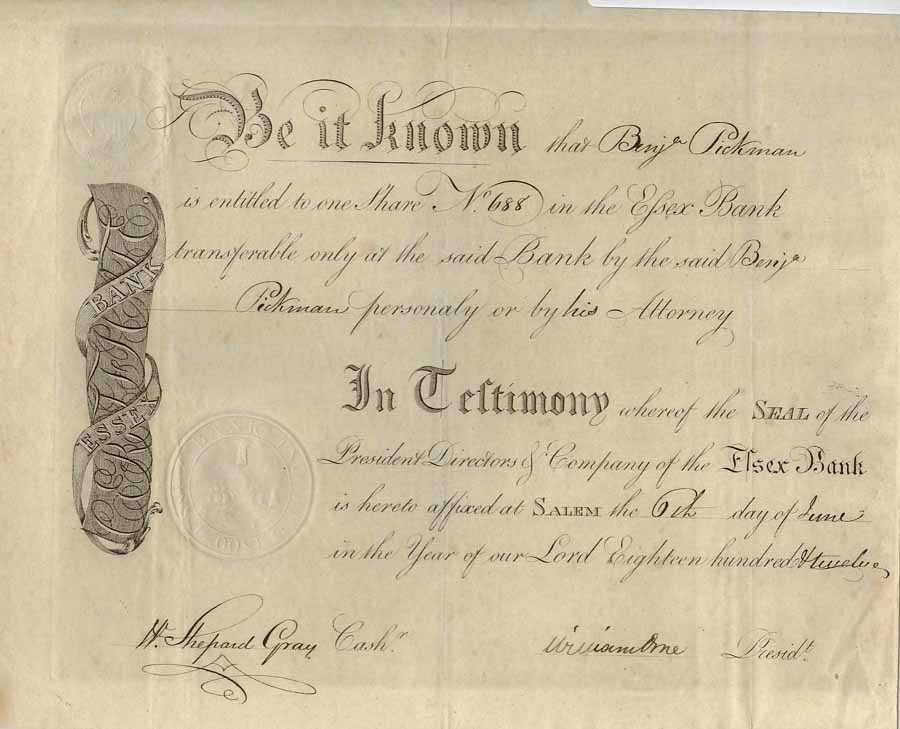 Be it known that Benjª Pickman
is entitled to one Share Nº 688 in the Eſsex Bank
transferable only at the said Bank by the said Benjª
Pickman personaly or by his Attorney
BANK
ESSEX
In Teſtimony whereof the SEAL of the
President Directors & Company of the Eſsex Bank
is hereto affixed at SALEM the 6th day of June
in the Year of our Lord Eighteen hundred & twelve
W. Shepard Gray Cashr.
William Orne Presidt.